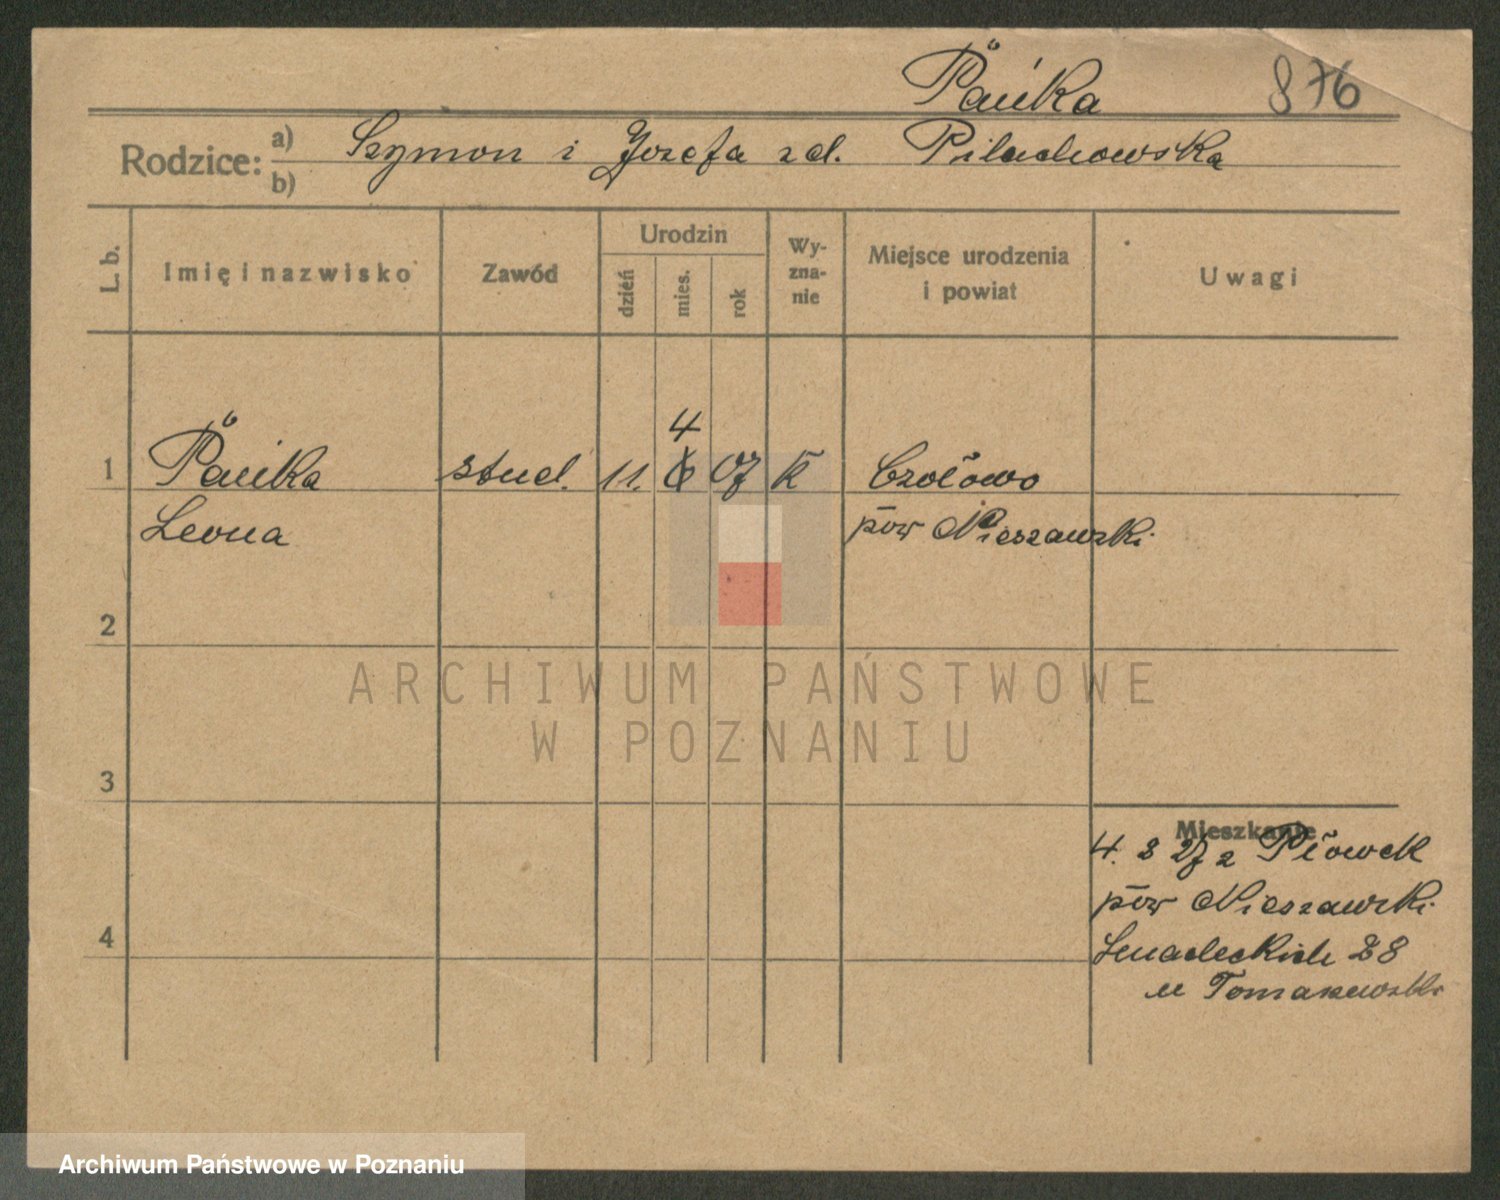 Pańka 876
Rodzice: a) Szymon i Józefa z d. Pilachowska
b)
L. b.
Imię i nazwisko
Zawód
Urodzin
dzień
mies.
rok
Wy-
zna-
nie
Miejsce urodzenia
i powiat
Uwagi
4
1 Pańka stud. 11. 6 07 k Czołowo
Leona pow Nieszawski
2
ARCHIWUM PAŃSTWOWE
W POZNANIU
3
Mieszkanie
4. 8 27 z Płowek
pow Nieszawski.
4
28
u
Archiwum Państwowe w Poznaniu